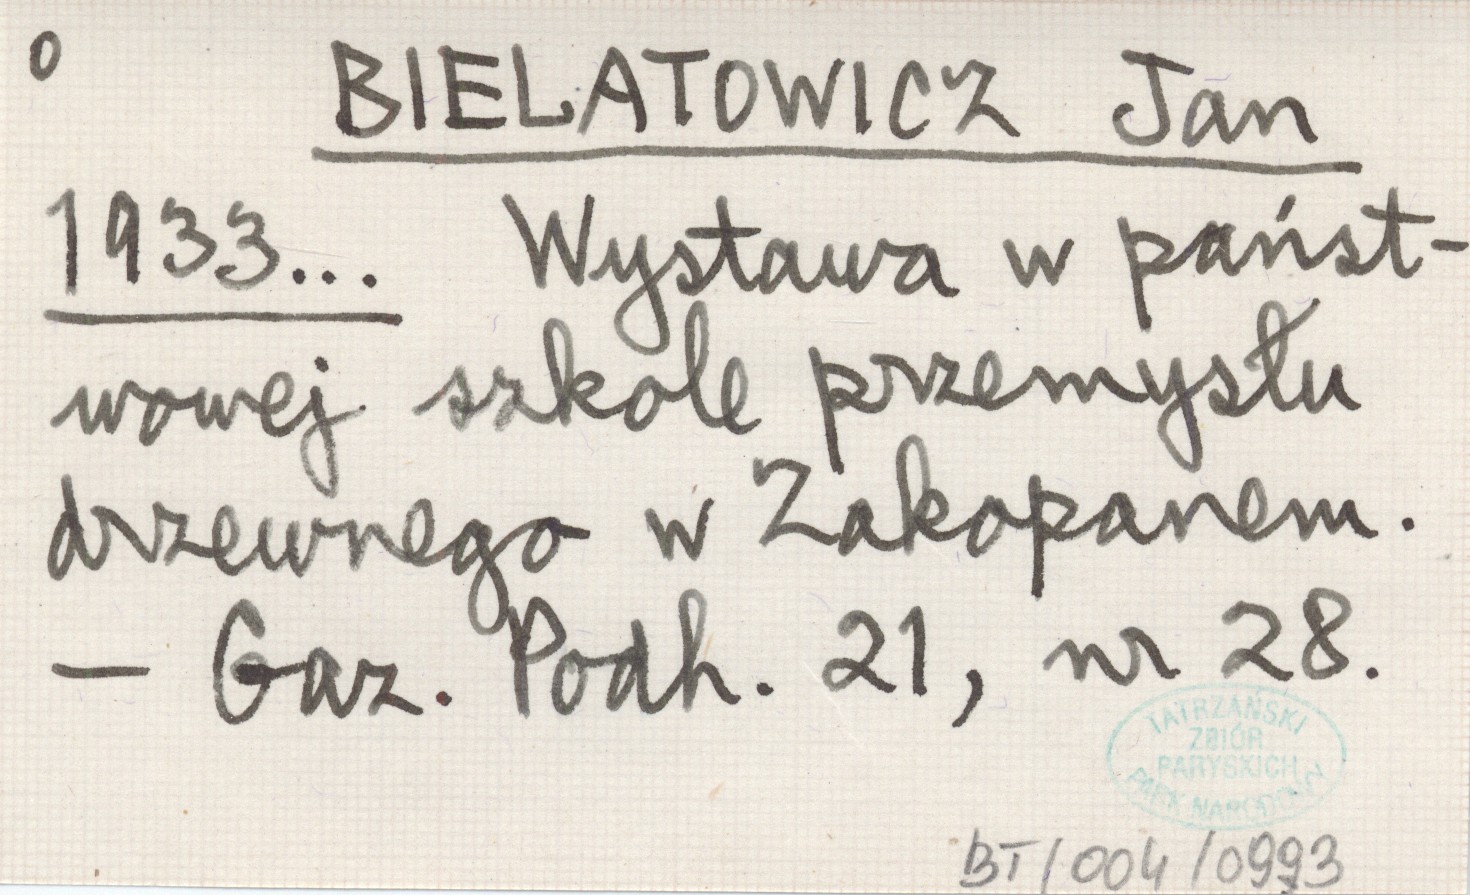 0 BIELATOWICZ Jan
1933... Wystawa w państ-
wowej szkole przemysłu
drzewnego w Zakopanem.
— Gaz. Podh. 21, nr 28.
TATRZAŃSKI
ZBIÓR
PARYSKICH
PARK NARODOWY
BT/004/0993